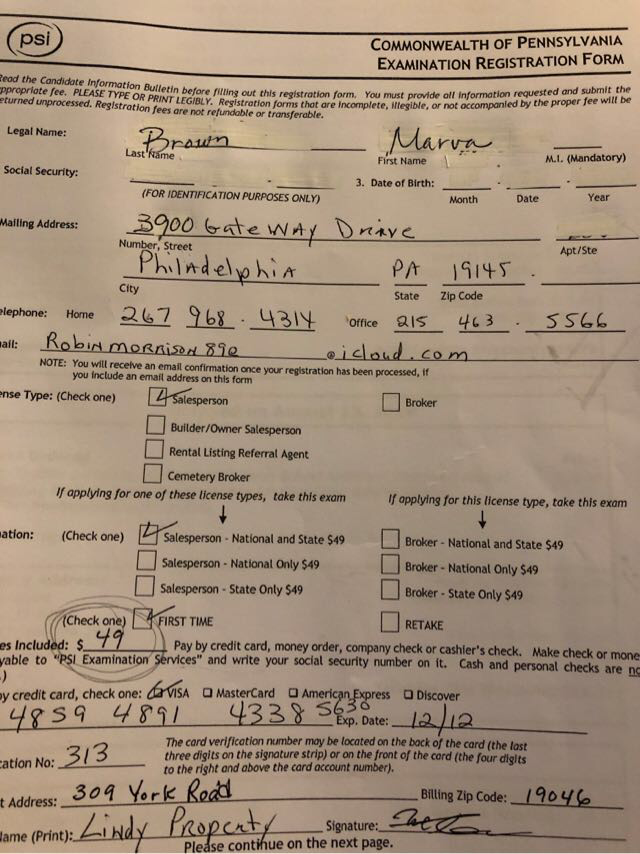 psi
COMMONWEALTH OF PENNSYLVANIA
EXAMINATION REGISTRATION FORM
Read the Candidate Information Bulletin before filling out this registration form. You must provide all information requested and submit the
appropriate fee. PLEASE TYPE OR PRINT LEGIBLY. Registration forms that are incomplete, illegible, or not accompanied by the proper fee will be
returned unprocessed. Registration fees are not refundable or transferable.
Legal Name: Brown Marva
Last Name First Name M.I. (Mandatory)
Social Security: 3. Date of Birth:
(FOR IDENTIFICATION PURPOSES ONLY) Month Date Year
Mailing Address: 3900 GateWAY Drive
Number, Street Apt/Ste
PhilAdelphiA PA 19145
City State Zip Code
elephone: Home 267 968 - 4314 Office 215 463 - 5566
ail: RobiN morrison 890 @icloud.com
NOTE: You will receive an email confirmation once your registration has been processed, if
you include an email address on this form
ense Type: (Check one) Salesperson Broker
Builder/Owner Salesperson
Rental Listing Referral Agent
Cemetery Broker
If applying for one of these license types, take this exam If applying for this license type, take this exam
ation: (Check one) Salesperson - National and State $49 Broker - National and State $49
Salesperson - National Only $49 Broker - National Only $49
Salesperson - State Only $49 Broker - State Only $49
(Check one) FIRST TIME RETAKE
es Included: $ 49 Pay by credit card, money order, company check or cashier's check. Make check or mone
yable to "PSI Examination Services" and write your social security number on it. Cash and personal checks are no
.)
y credit card, check one: VISA MasterCard American Express Discover
[card number redacted] Exp. Date: 12/12
The card verification number may be located on the back of the card (the last
cation No: [redacted] three digits on the signature strip) or on the front of the card (the four digits
to the right and above the card account number).
t Address: 309 York Road Billing Zip Code: 19046
ame (Print): Lindy Property Signature:
Please continue on the next page.